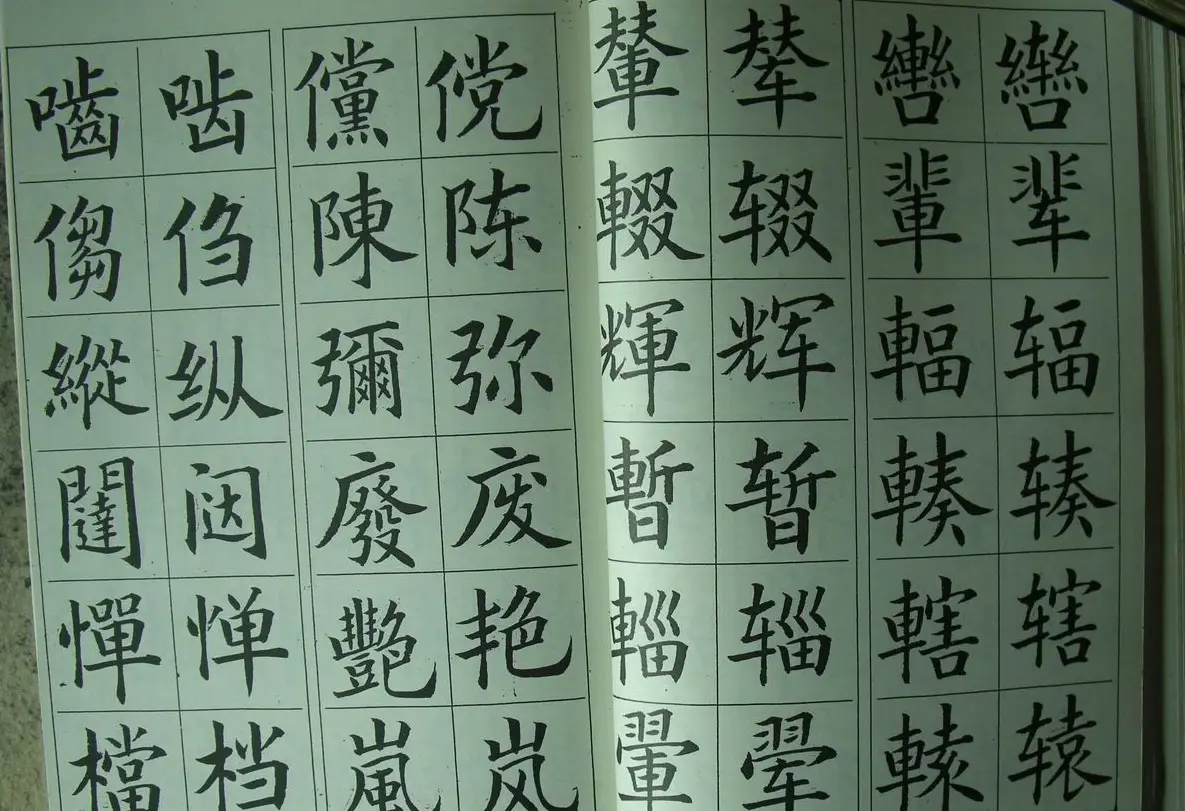 嚙 啮 儻 傥 輦 辇 轡 辔
㑳 㑇 陳 陈 輟 辍 輩 辈
縱 纵 彌 弥 輝 辉 輻 辐
闥 闼 廢 废 暫 暂 輳 辏
憚 惮 艷 艳 輜 辎 轄 辖
檔 档 嵐 岚 翬 翚 轅 辕